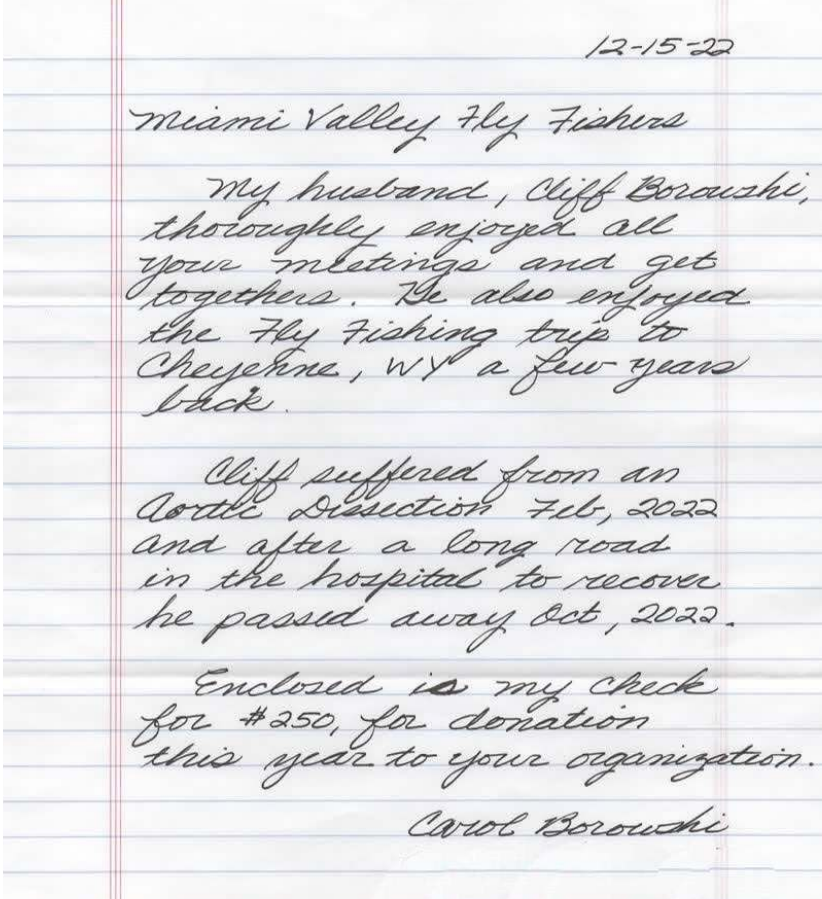 12-15-22
Miami Valley Fly Fishers
My husband, Cliff Borowski,
thoroughly enjoyed all
your meetings and get
togethers. He also enjoyed
the Fly Fishing trip to
Cheyenne, WY a few years
back.
Cliff suffered from an
Aortic Dissection Feb, 2022
and after a long road
in the hospital to recover
he passed away Oct, 2022.
Enclosed is my check
for #250, for donation
this year to your organization.
Carol Borowski